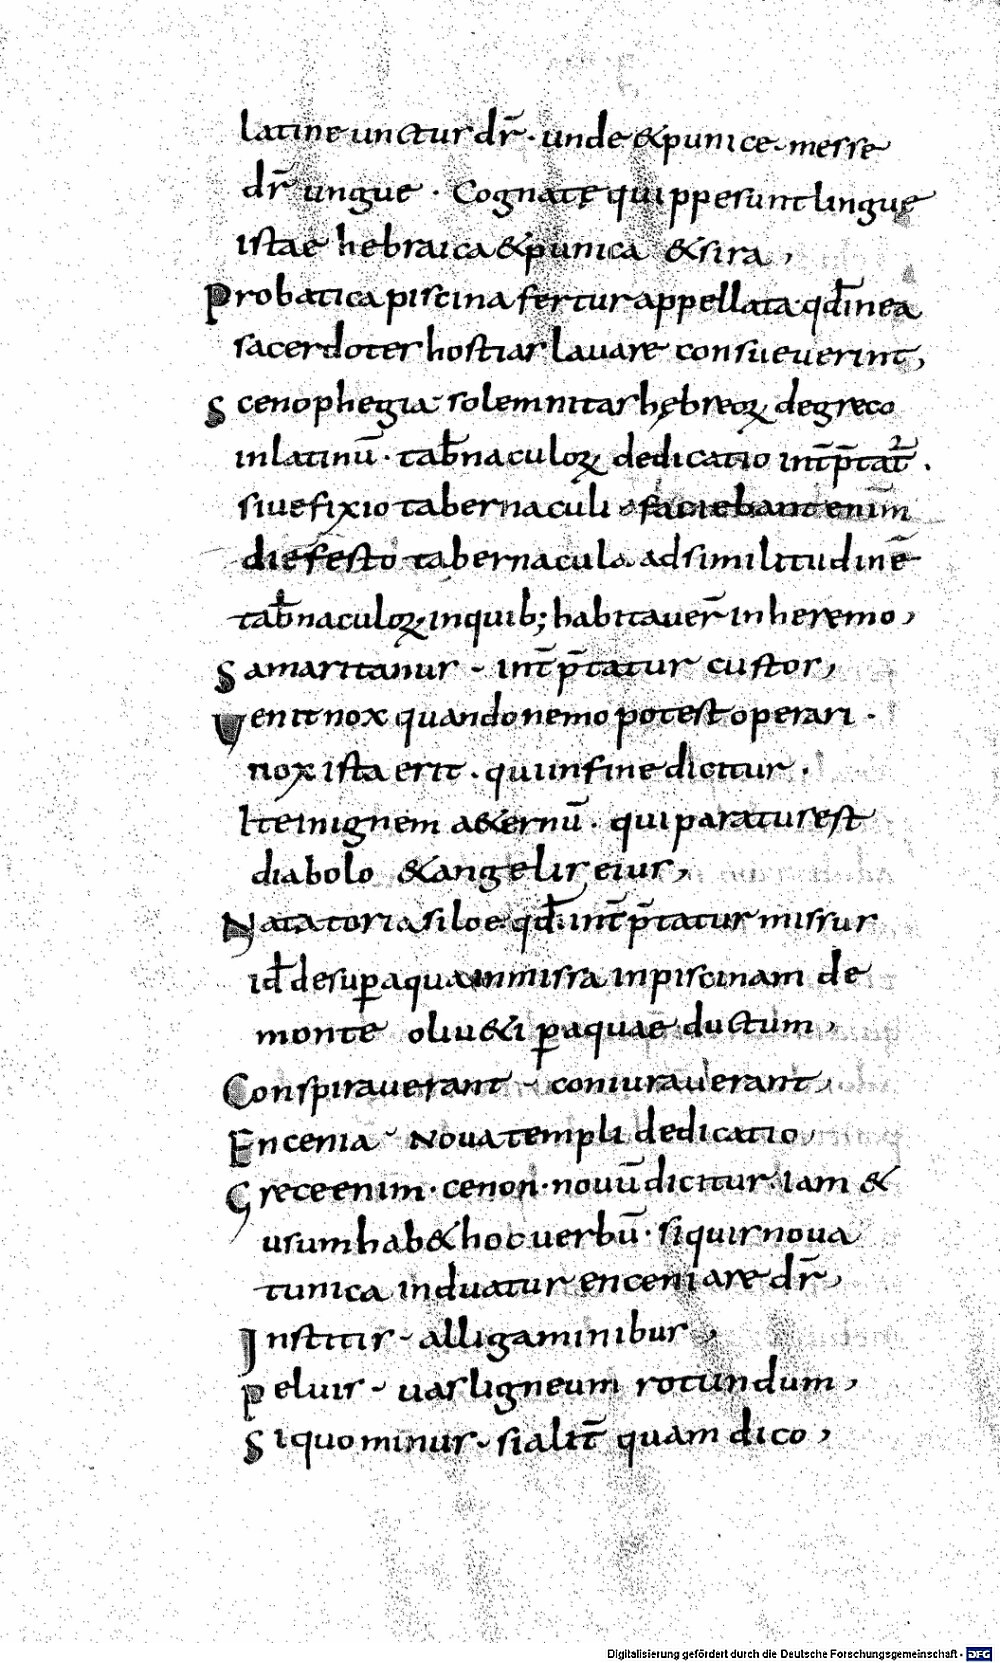 latine unctus dr̄ · unde & punice · messe
dr̄ ungue · Cognatę quippe sunt lingue
istae hebraica & punica & sira,
Probatica piscina fertur appellata · qd̄ in ea
sacerdotes hostias lavare consueverint,
Scenophegia solemnitas hębreoꝝ de greco
in latinū · tab̄naculoꝝ dedicatio int̄p̄tat᷑ ·
sive fixio tabernaculi · faciebant enim̄
die festo tabernacula ad similitudinē
tab̄naculoꝝ · in quib; habitaver̄ in heremo,
Samaritanus - int̄p̄tatur custos,
Venit nox quando nemo potest operari ·
nox ista erit · qui in fine dicitur ·
Ite in ignem a&ernū · qui paratus est
diabolo & angelis eius,
Natatoria siloe · qd̄ · int̄p̄tatur missus
id̄ desuꝑ aqua inmissa in piscinam de
monte oliu&i ꝑ aquae ductum,
Conspiraverant - coniuraverant,
Encenia - Nova templi dedicatio,
Grece enim · cenon · novū dicitur · iam &
usum hab& hoc verbū · si quis nova
tunica induatur enceniare dr̄,
Institis - alligaminibus,
Peluis - vas ligneum rotundum,
Si quo minus - si alit̄ quam dico,
Digitalisierung gefördert durch die Deutsche Forschungsgemeinschaft - DFG